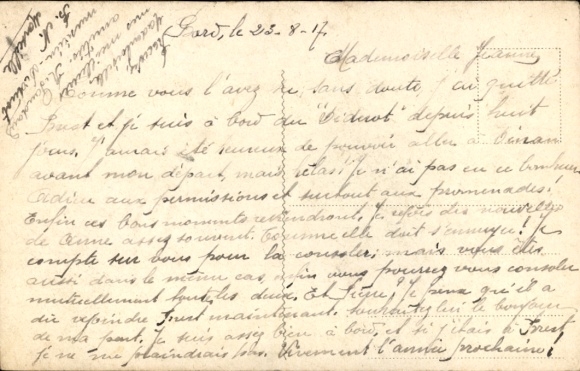 Bord, le 23-8-17
Mademoiselle Jeanne
Comme vous l'avez su, sans doute, j'ai quitté
Brest et je suis à bord du "Diderot" depuis huit
jours. J'aurais été heureux de pouvoir aller à Dinan
avant mon départ, mais hélas! Je n'ai pas eu ce bonheur
Adieu aux permissions et surtout aux promenades!
Enfin ces bons moments reviendront. Je reçois des nouvelles
de Anne assez souvent. Comme elle doit s'ennuyer! Je
compte sur vous pour la consoler; mais vous êtes
aussi dans le même cas, enfin vous pourrez vous consoler
mutuellement toutes les deux. Et Pierre? Je pense qu'il a
dû rejoindre Brest maintenant. Souhaitez lui le bonjour
de ma part. Je suis assez bien à bord, et si j'étais à Brest
je ne me plaindrais pas. Vivement l'année prochaine!
amitiés
Marseille